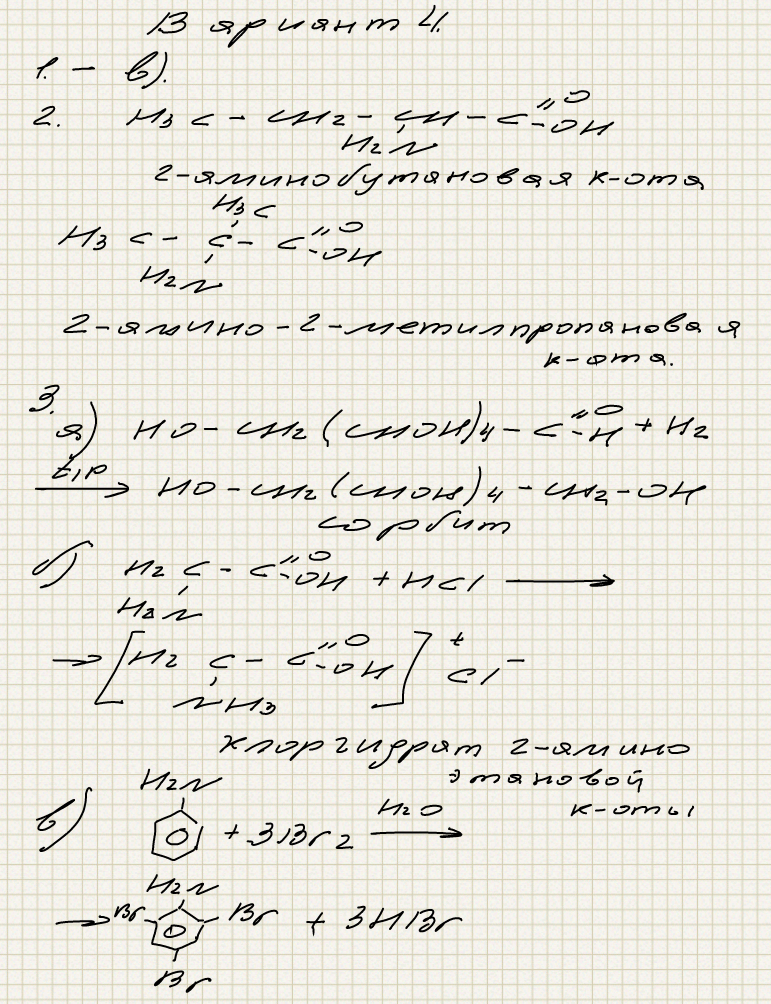 Вариант 4.
1. – в).
2. H3C – CH2 – CH – C =O –OH
H2N
2-аминобутановая к-ота
H3C
H3C – C – C =O –OH
H2N
2-амино-2-метилпропановая
к-ота.
3.
а) HO – CH2(CHOH)4 – C =O –H + H2
t,p
→ HO – CH2(CHOH)4 – CH2 – OH
сорбит
б) H2C – C =O –OH + HCl →
H2N
→ [H2C – C =O –OH]+ Cl–
NH3
хлоргидрат 2-амино
этановой
к-оты
H2N
в) + 3Br2 H2O →
H2N
→ Br Br + 3HBr
Br